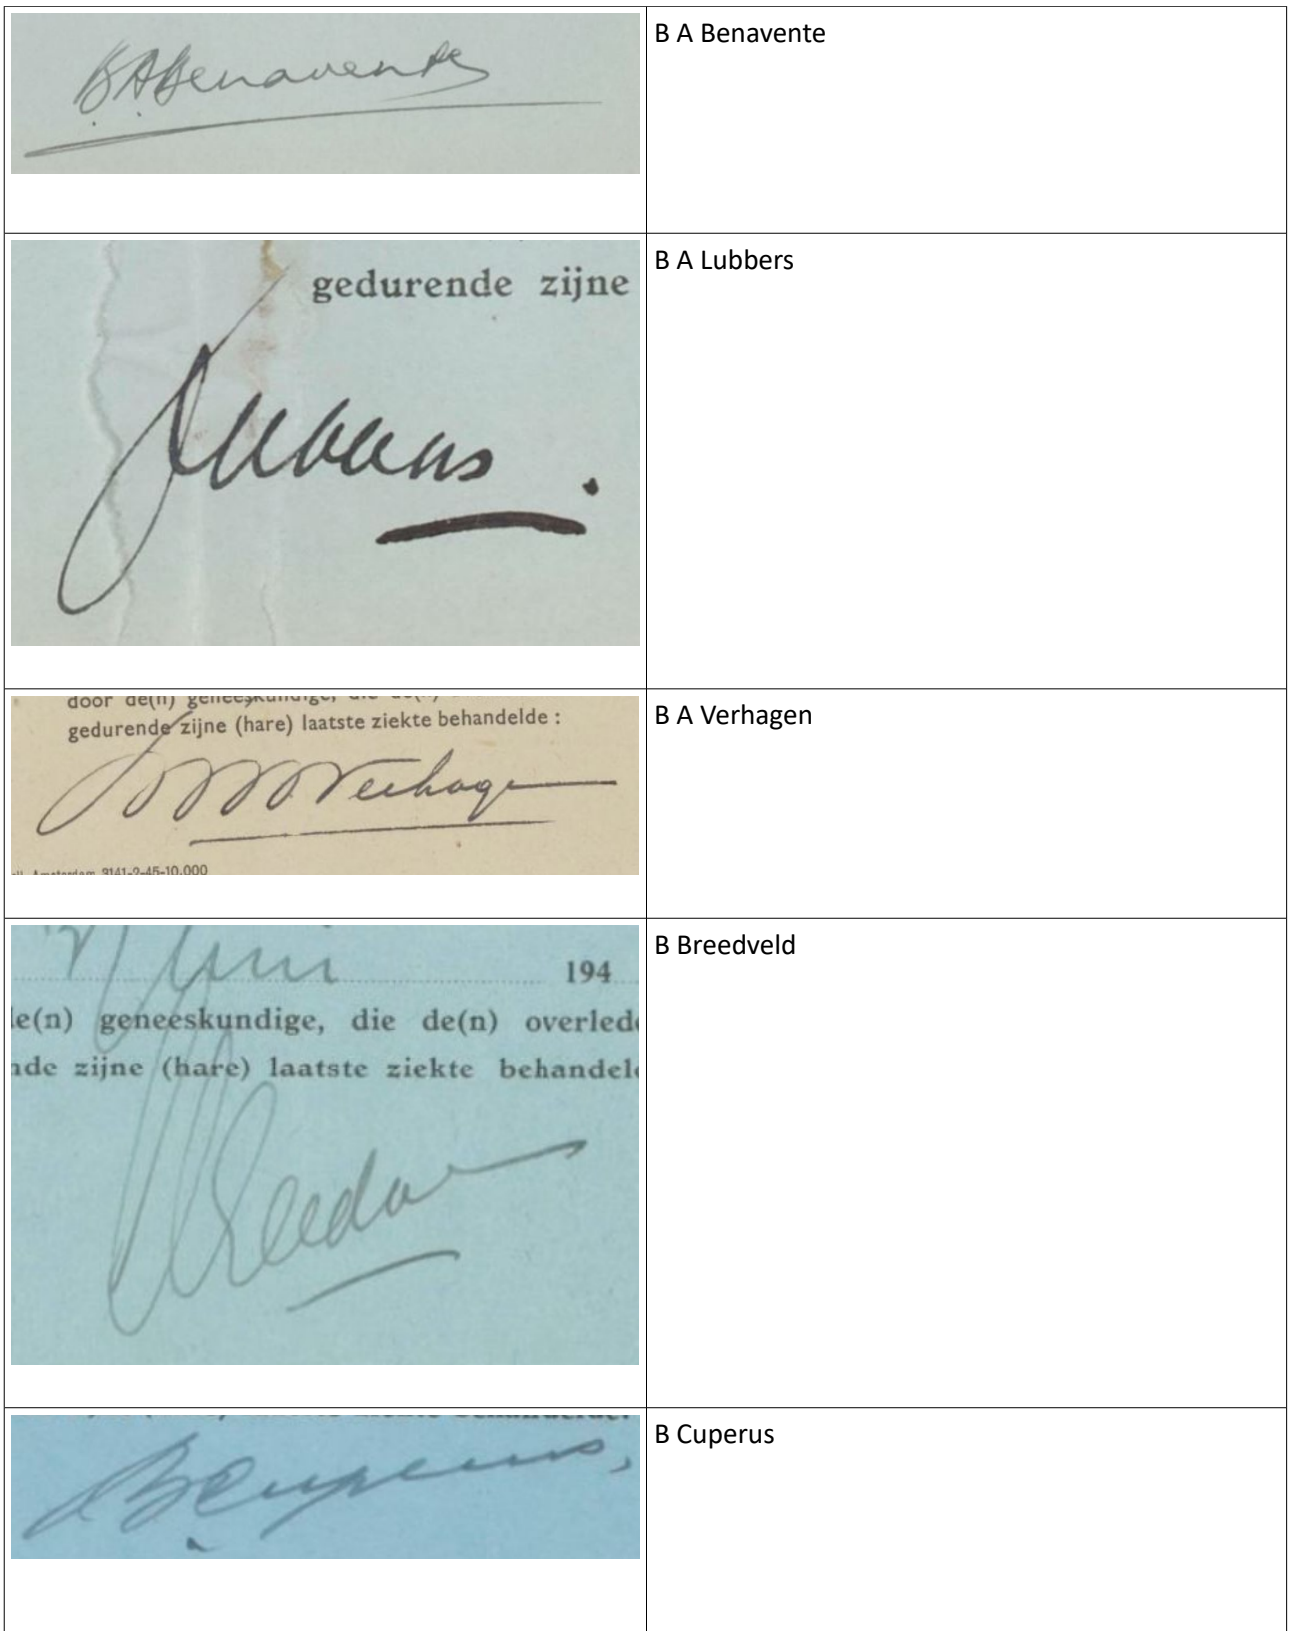 B.A.Benavente
B A Benavente
gedurende zijne
Lubbers.
B A Lubbers
door de(n) geneeskundige, die de(n)
gedurende zijne (hare) laatste ziekte behandelde :
Verhagen
Amsterdam 3141-2-45-10.000
B A Verhagen
Juni 194
e(n) geneeskundige, die de(n) overlede
de zijne (hare) laatste ziekte behandel
B Breedveld
B Cuperus,
B Cuperus